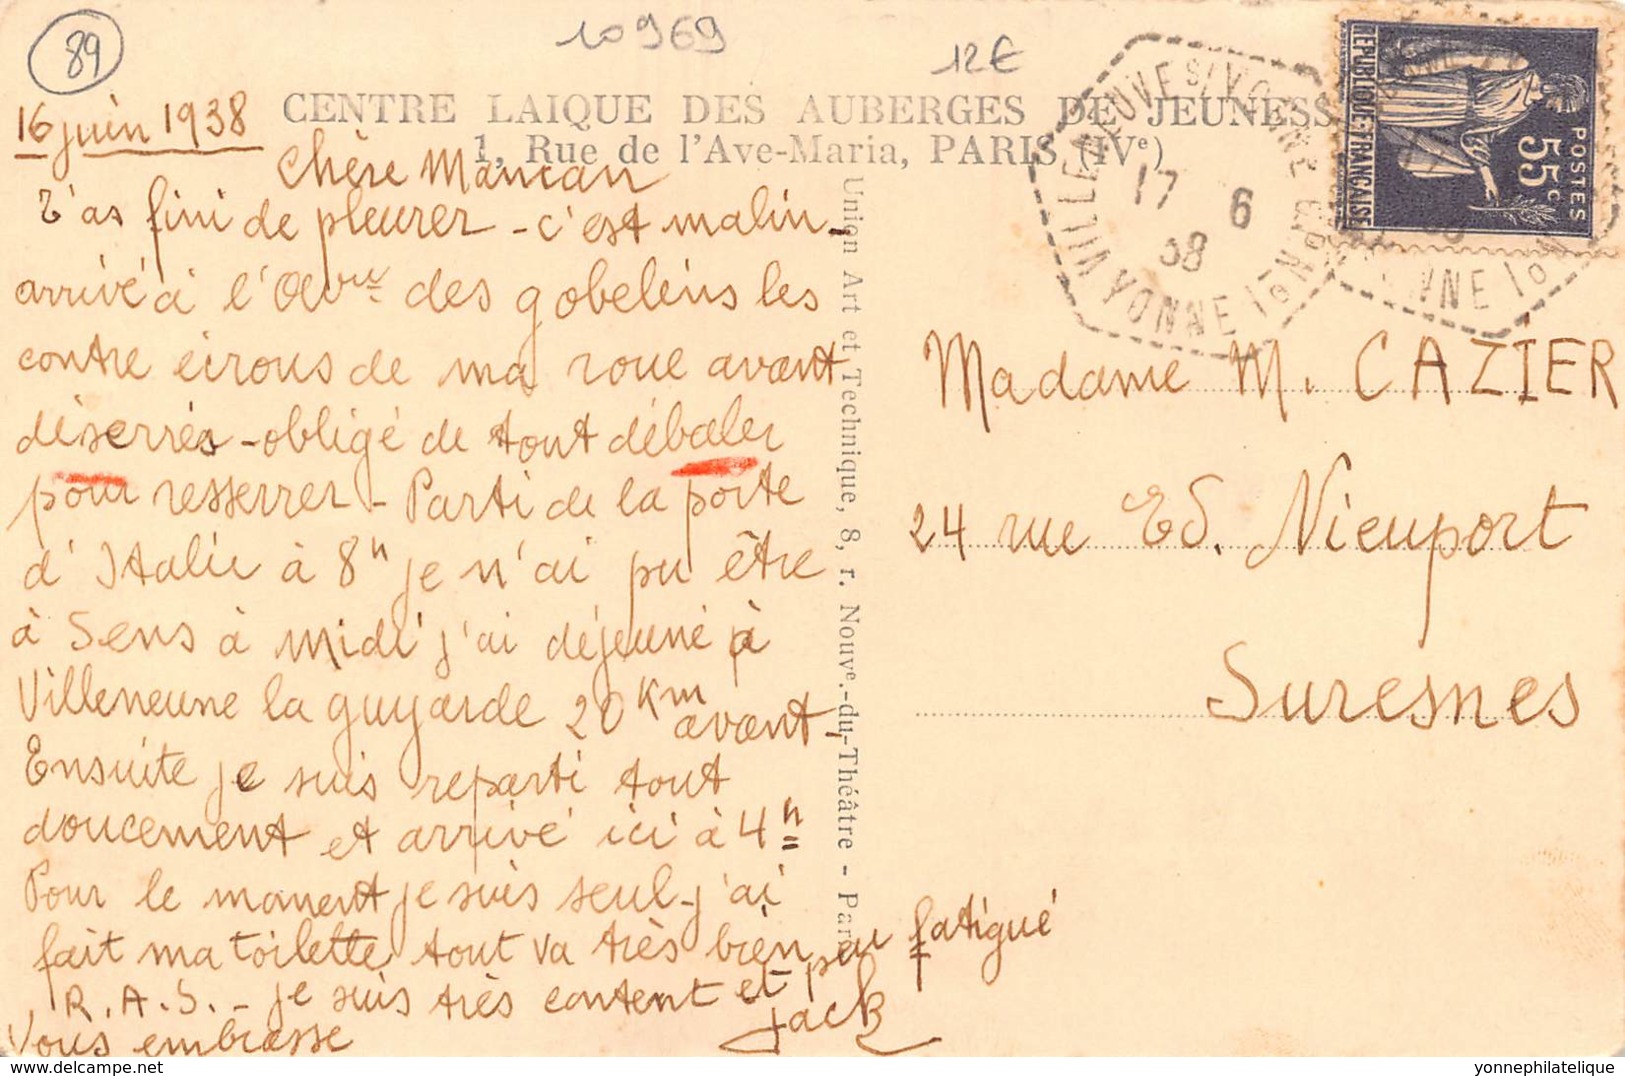 89
10969
12€
CENTRE LAIQUE DES AUBERGES DE JEUNESS
1, Rue de l'Ave-Maria, PARIS (IVe)
16 juin 1938
Chère Maman
T'as fini de pleurer - c'est malin -
arrivé à l' des gobelins les
contre écrous de ma roue avant
désserrés - obligé de tout débaler
pour resserrer - Parti de la porte
d'Italie à 8h je n'ai pu être
à Sens à midi j'ai déjeuné à
Villeneuve la guyarde 20 Km avant -
Ensuite je suis reparti tout
doucement et arrivé ici à 4h
Pour le moment je suis seul - j'ai
fait ma toilette tout va très bien peu fatigué
R.A.S. - je suis très content et
vous embrasse Jack
Union Art et Technique, 8, r. Nouve.-du-Théâtre - Par
VILLENEUVE S/ YONNE
17 6
38
YONNE
RÉPUBLIQUE FRANÇAISE
55c
POSTES
Madame M. CAZIER
24 rue Ed. Nieuport
Suresnes
yonnephilatelique